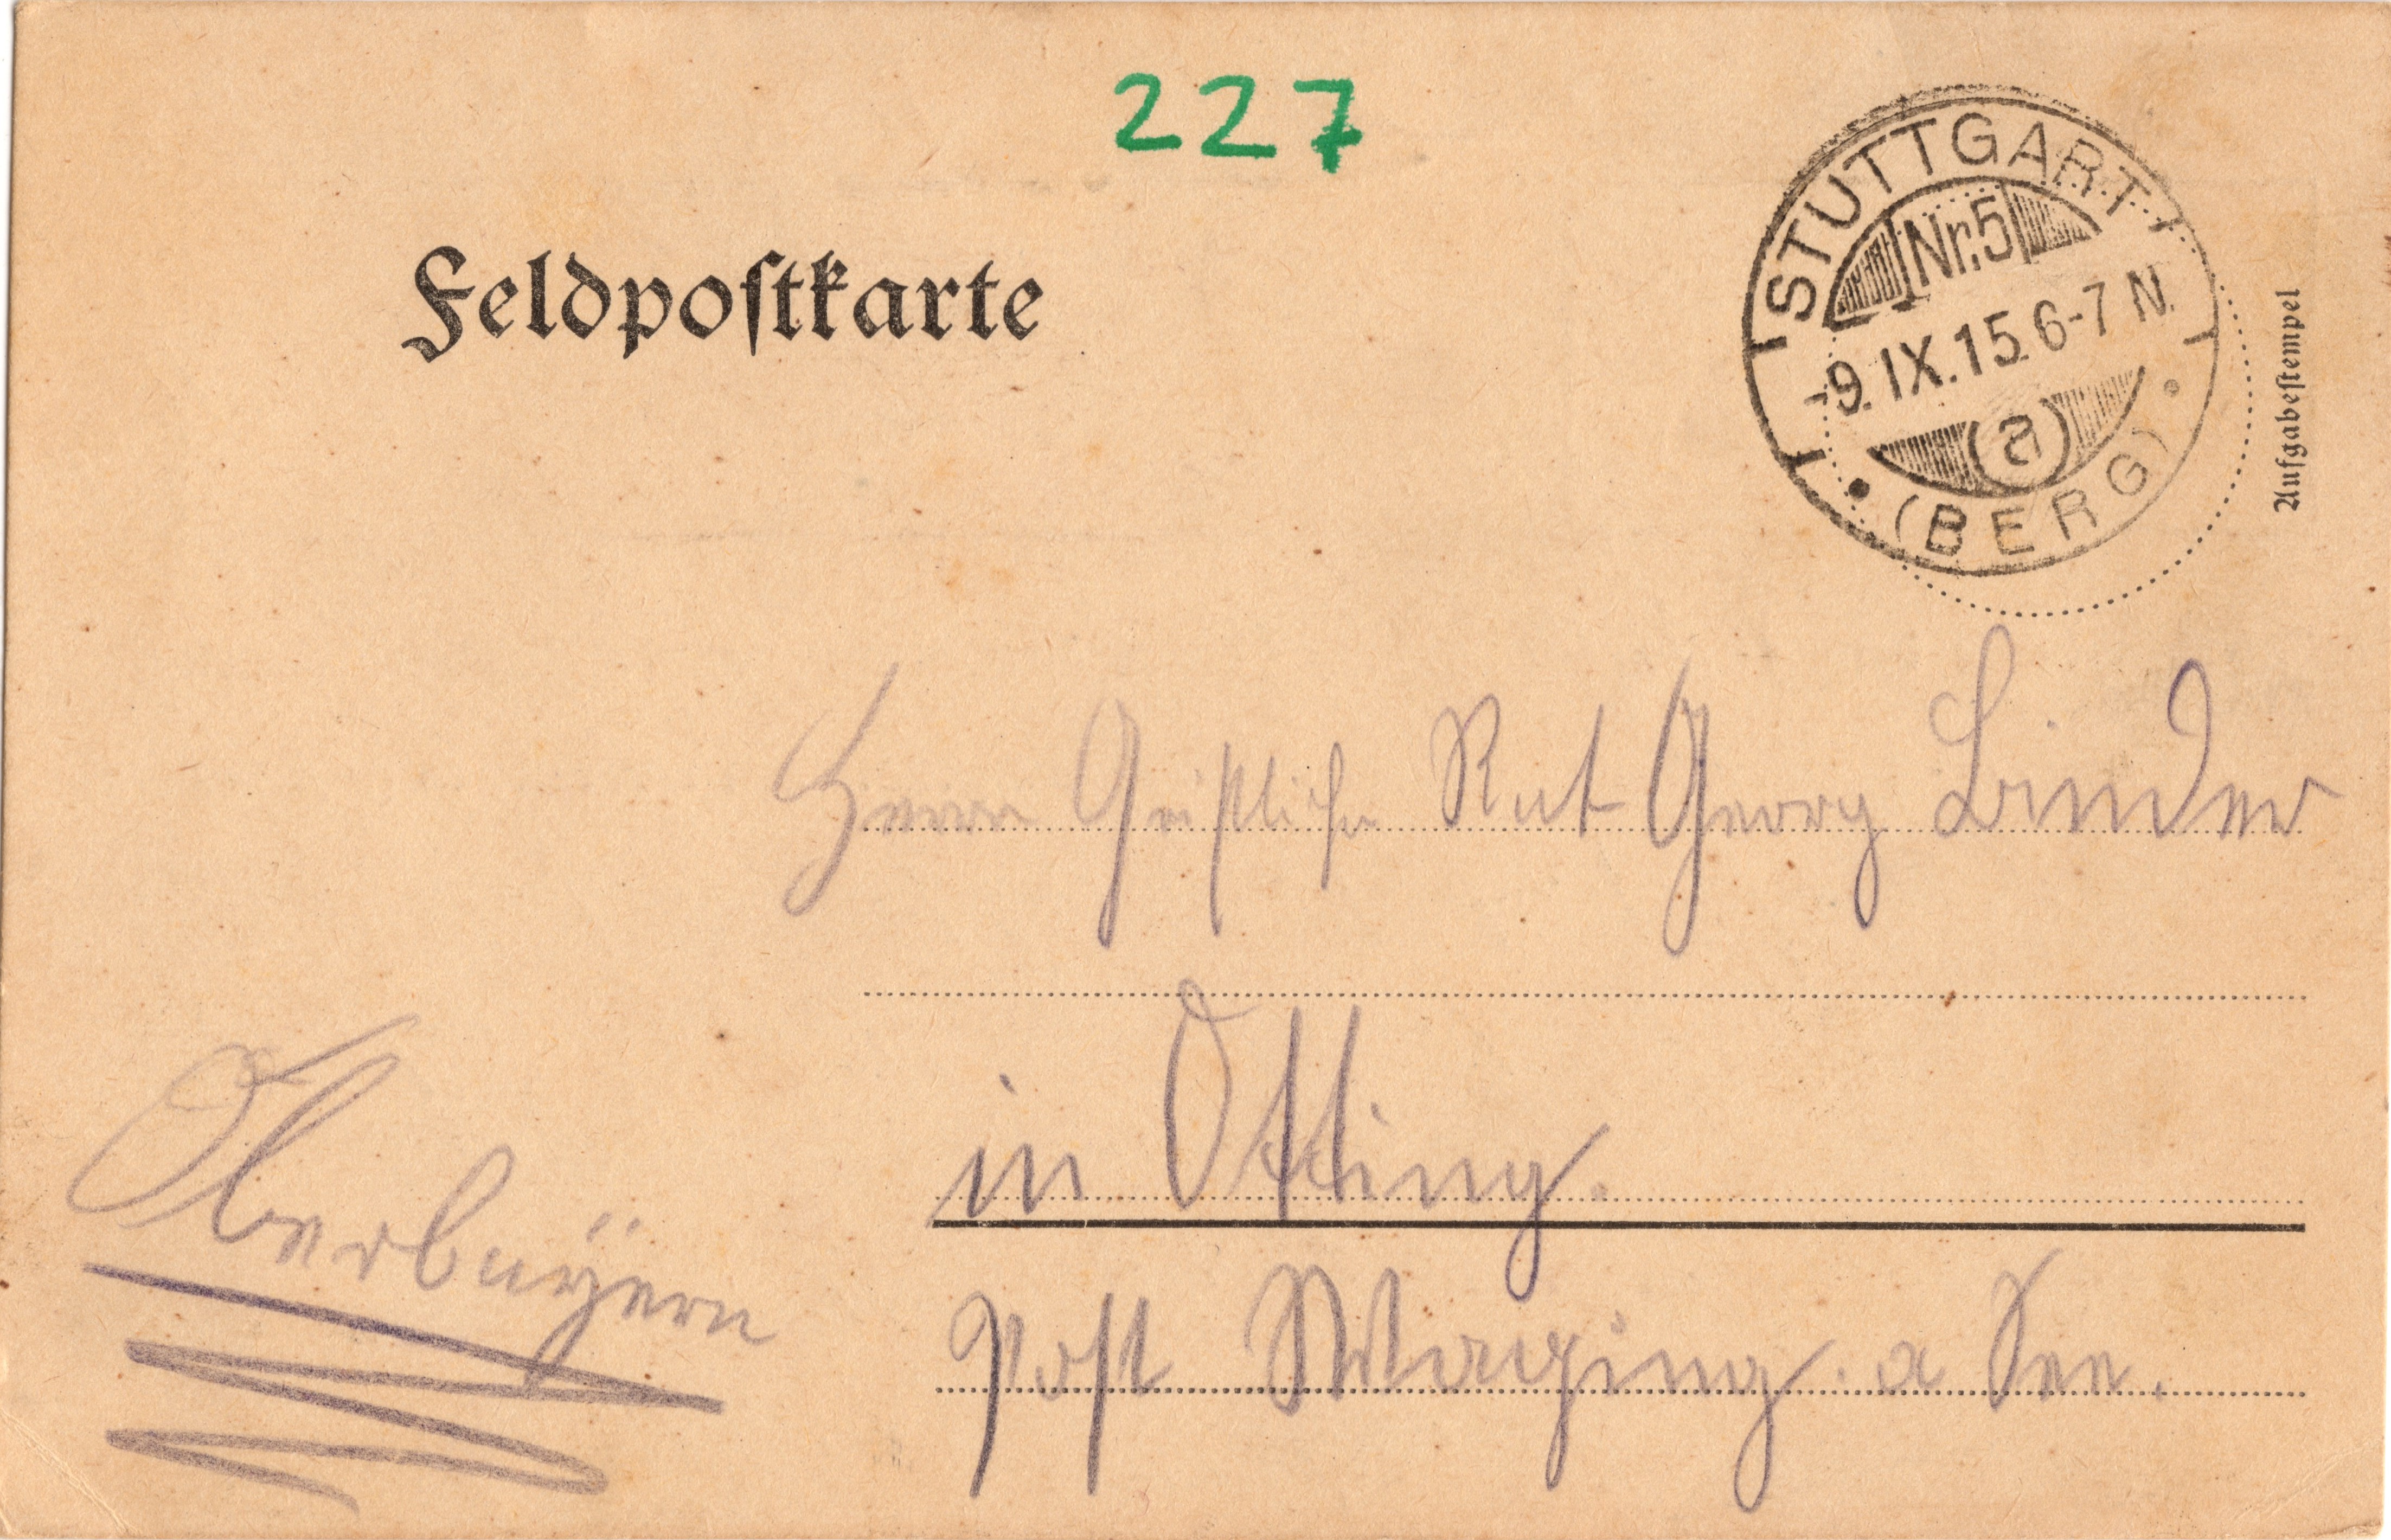 227
Feldpostkarte
STUTTGART
Nr. 5
-9. IX. 15. 6-7 N.
a
(BERG)
Aufgabestempel
Herrn Geistlichn Rat Georg Linder
in Otting.
Post Waging. a See.
Oberbayern